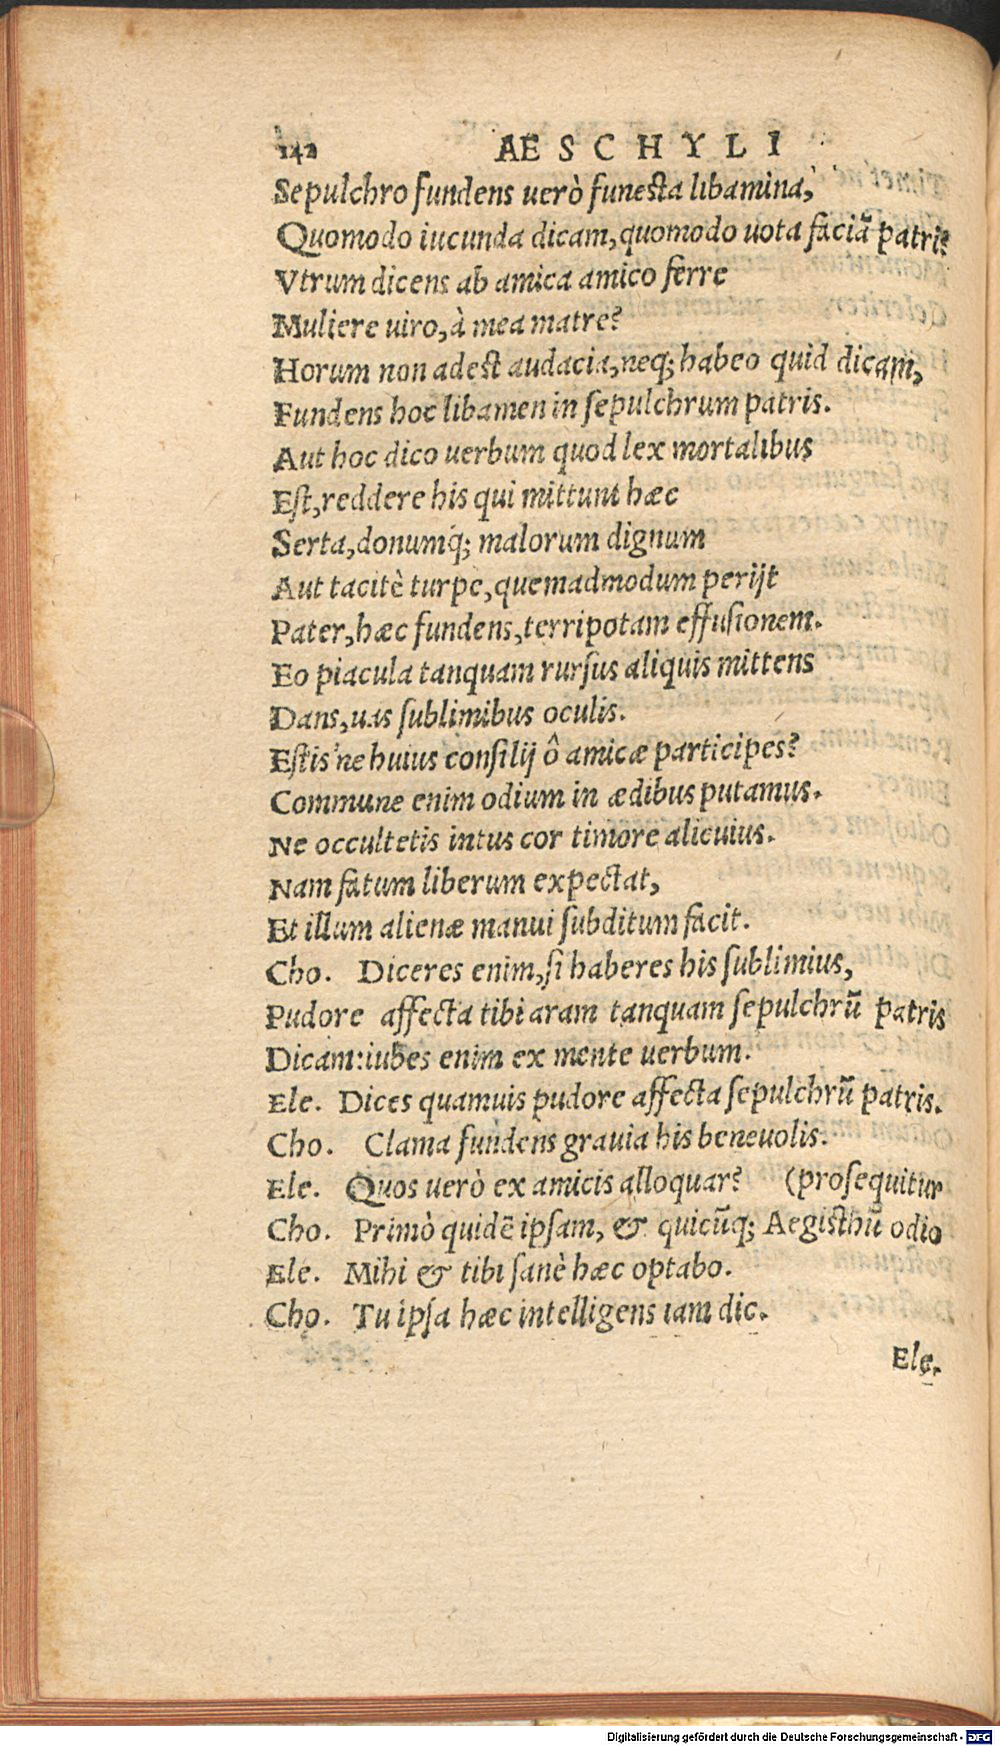 142 AESCHYLI
Sepulchro fundens uerò funesta libamina,
Quomodo iucunda dicam, quomodo uota faciã patri?
Vtrum dicens ab amica amico ferre
Muliere uiro, à mea matre?
Horum non adest audacia, neq; habeo quid dicam,
Fundens hoc libamen in sepulchrum patris.
Aut hoc dico uerbum quod lex mortalibus
Est, reddere his qui mittunt hæc
Serta, donumq́; malorum dignum
Aut tacitè turpe, quemadmodum perijt
Pater, hæc fundens, terripotam effusionem.
Eo piacula tanquam rursus aliquis mittens
Dans, uas sublimibus oculis.
Estis'ne huius consilij ô amicæ participes?
Commune enim odium in ædibus putamus.
Ne occultetis intus cor timore alicuius.
Nam fatum liberum expectat,
Et illum alienæ manui subditum facit.
Cho. Diceres enim, si haberes his sublimius,
Pudore affecta tibi aram tanquam sepulchrũ patris
Dicam: iubes enim ex mente uerbum.
Ele. Dices quamuis pudore affecta sepulchrũ patris.
Cho. Clama fundens grauia his beneuolis.
Ele. Quos uerò ex amicis alloquar? (prosequitur
Cho. Primò quidẽ ipsam, & quicũq; Aegisthũ odio
Ele. Mihi & tibi sanè hæc optabo.
Cho. Tu ipsa hæc intelligens iam dic.
Ele.
Digitalisierung gefördert durch die Deutsche Forschungsgemeinschaft - DFG